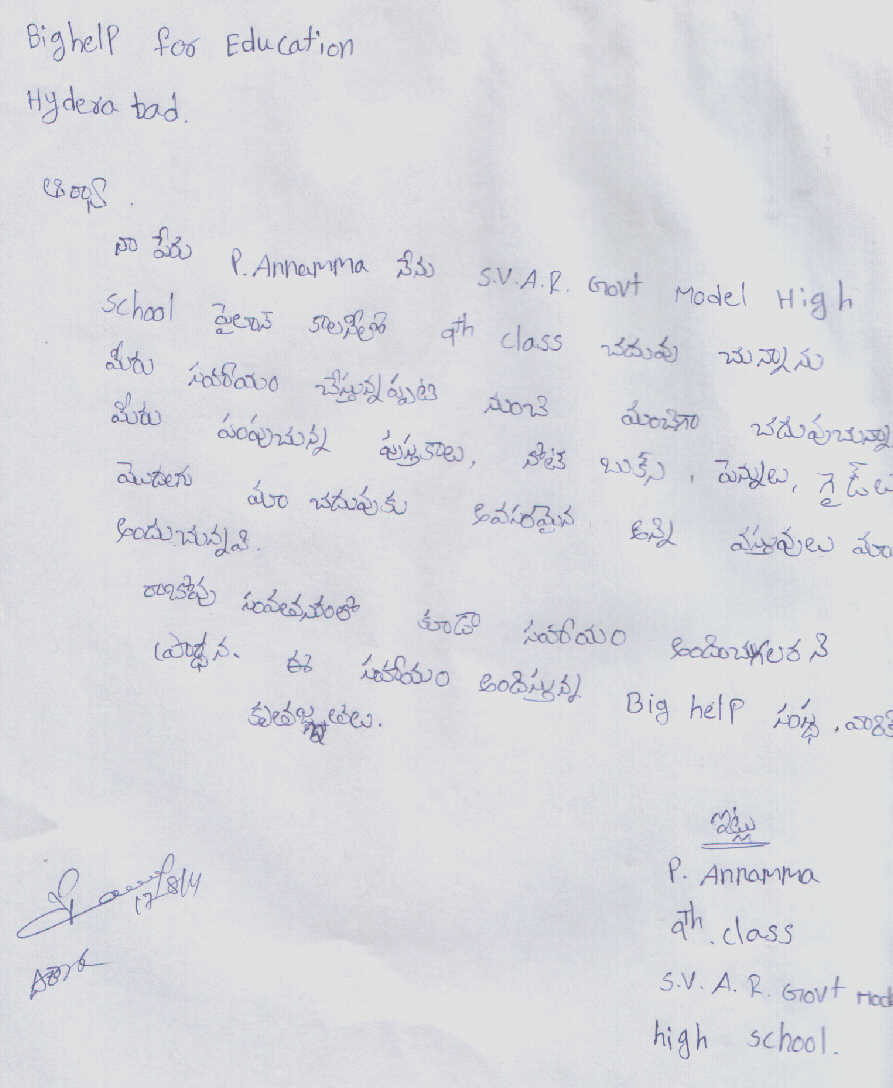 Bighelp for Education
Hyderabad.
ఆర్యా.
నా పేరు P. Annamma నేను S.V.A.R. Govt Model High
school పైలాన్ కాలనీలో 9th class చదువు చున్నాను
మీరు సహాయం చేస్తున్నప్పటి నుంచి మంచిగా చదువుచున్నా
మీరు పంపుచున్న పుస్తకాలు, నోట్ బుక్స్, పెన్నులు, గైడ్లు
మొదలగు మా చదువుకు అవసరమైన అన్ని వస్తువులు మా
అందుచున్నవి.
రాబోవు సంవత్సరంలో కూడా సహాయం అందించగలరని
ప్రార్థన. ఈ సహాయం అందిస్తున్న Big help సంస్థ, వారికి
కృతజ్ఞతలు.
ఇట్లు
P. Annamma
9th. class
S.V. A. R. Govt Mod
high school.
17/8/14